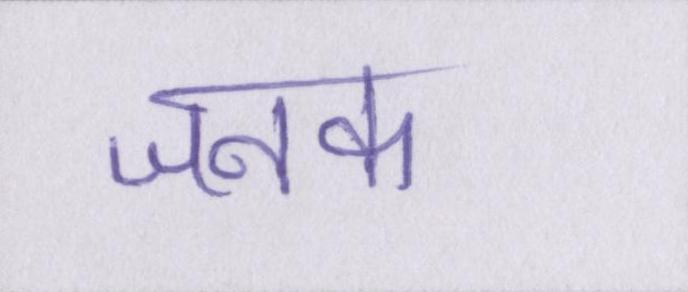 जनक